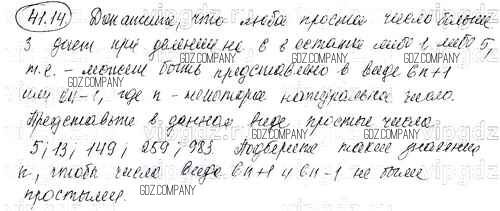 41.14 Докажите, что любое простое число больше
3 дает при делении на 6 в остатке либо 1, либо 5,
т.е. - может быть представлено в виде 6n+1
или 6n-1, где n - некоторое натуральное число.
Представьте в данном виде простые числа
5; 13; 149; 259; 983. Подберите такие значения
n, чтобы числа вида 6n+1 и 6n-1 не были
простыми.
GDZ.COMPANY
vipgdz